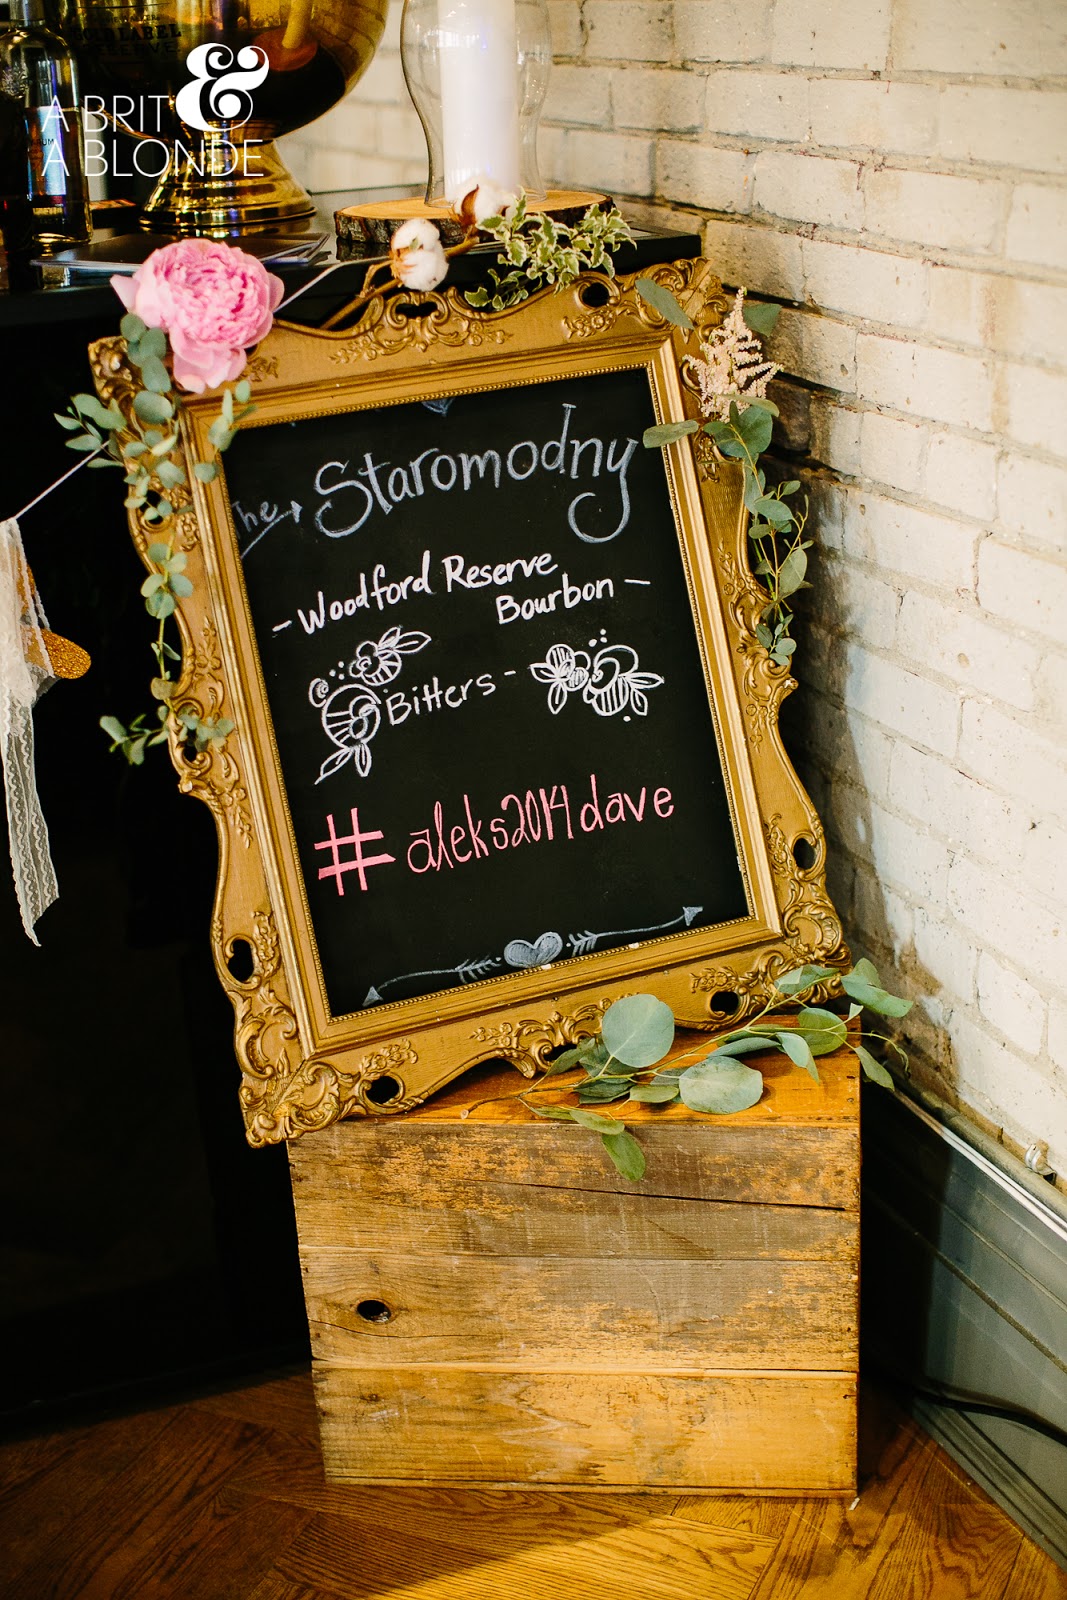 A BRIT &
A BLONDE
GOLD LABEL
RESERVE
The Staromodny
- Woodford Reserve
Bourbon -
Bitters -
#aleks2014dave